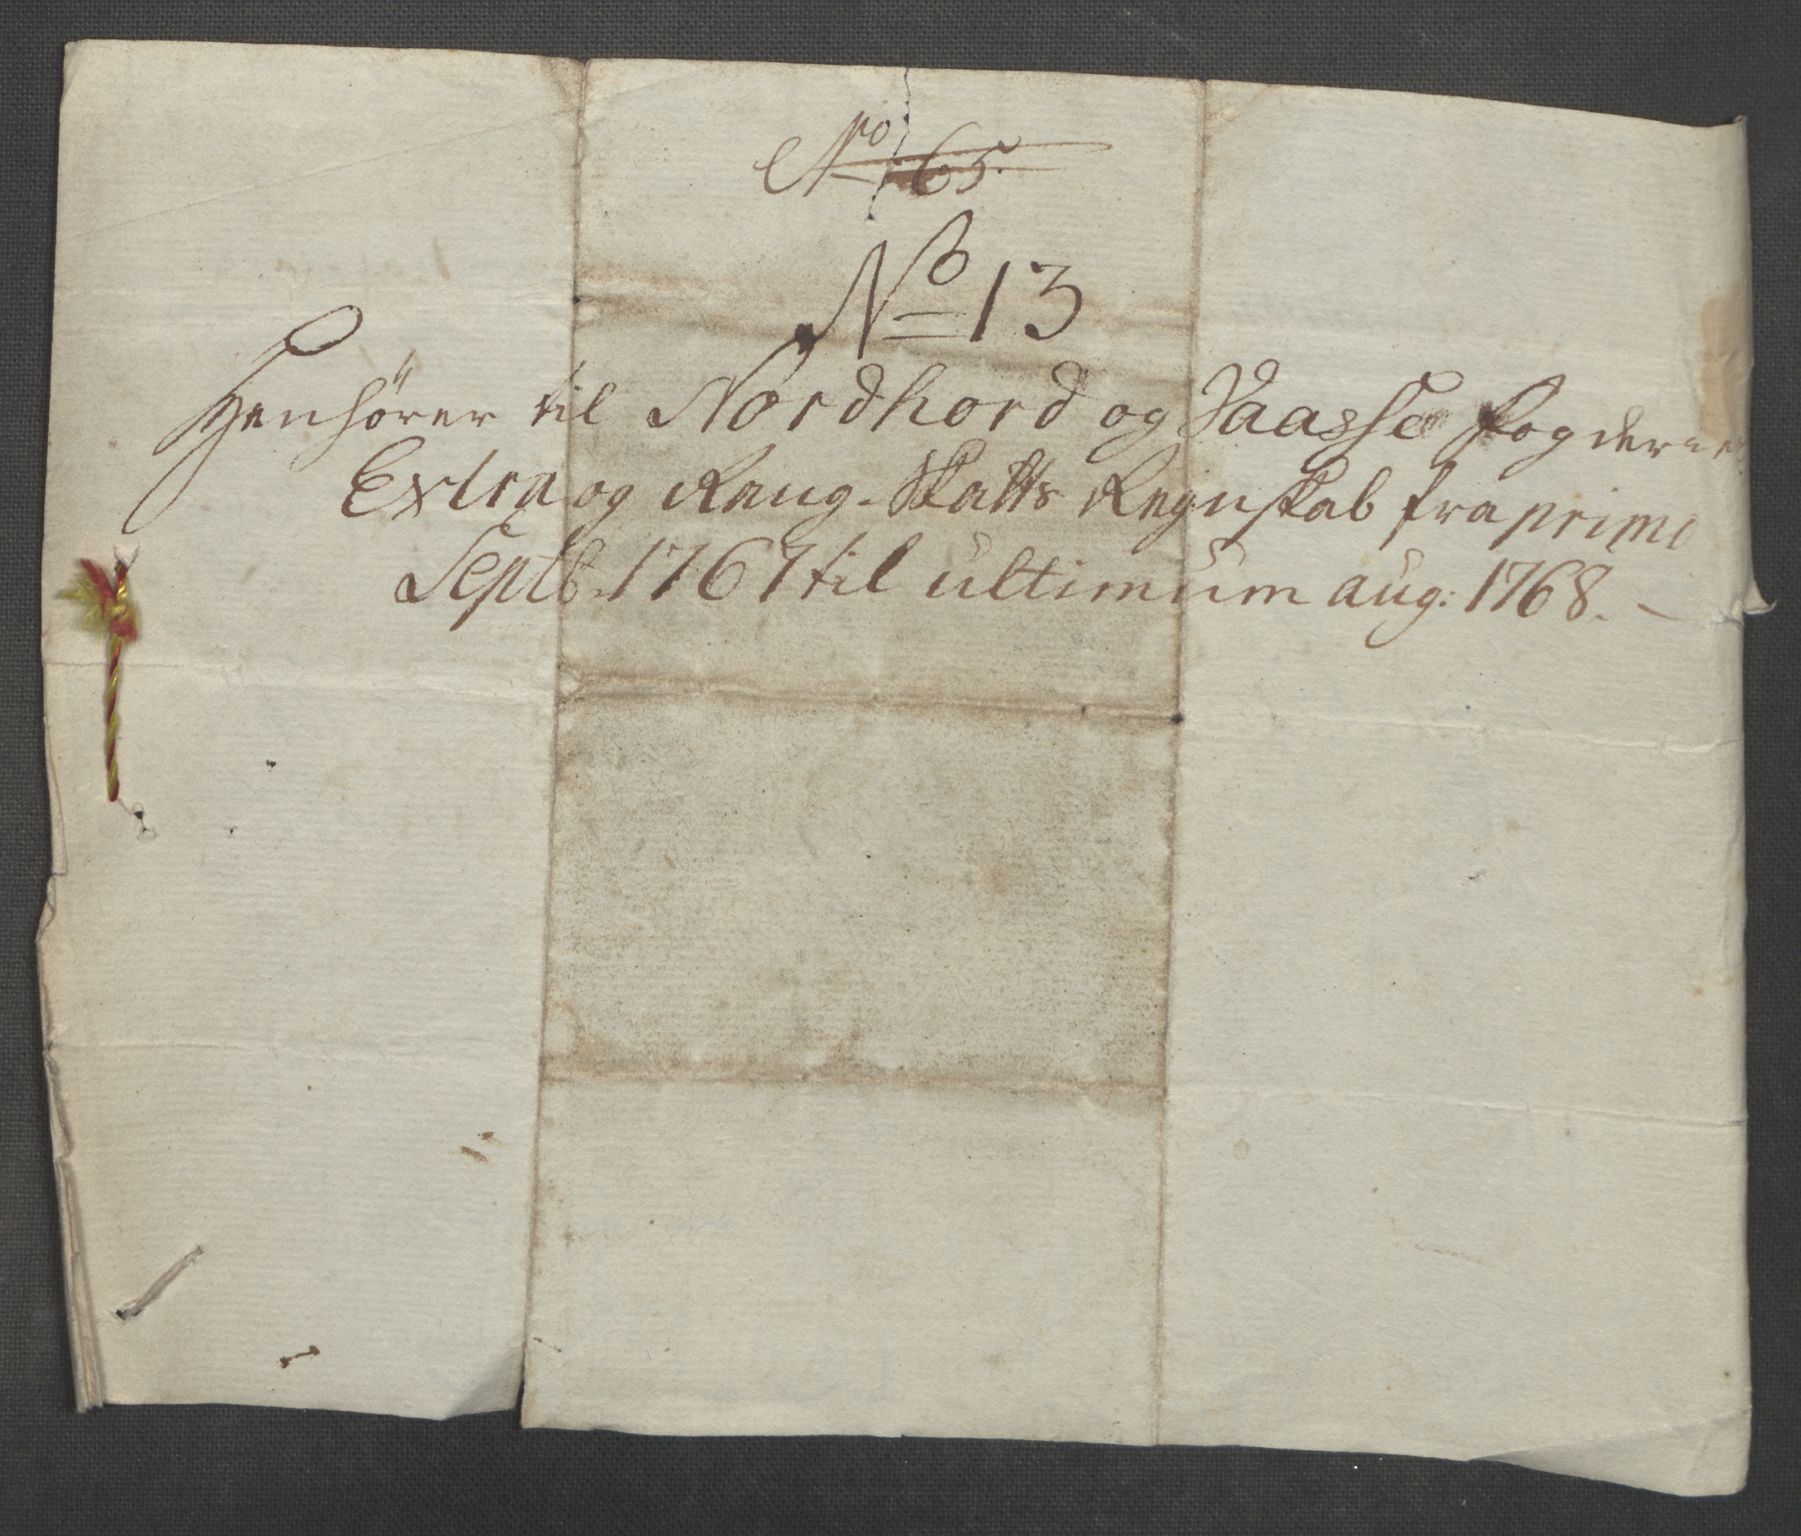 No 165.
No 13
Henhörer til Nordhord og Vaasse fogderie
Extra og Rang-Skatts Regnskab fra primo
Septb. 1767 til ultimum aug: 1768. –